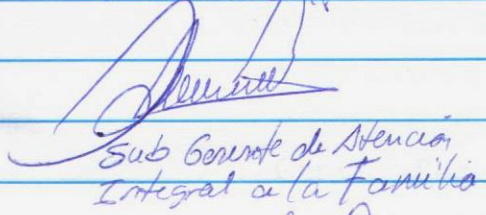 Sub Gerente de Atención
Integral a la Familia